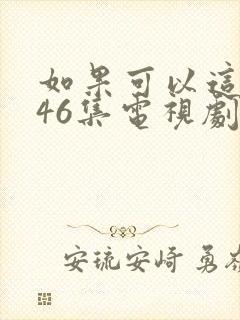 如果可以這
46集電視劇
安琉安崎 勇